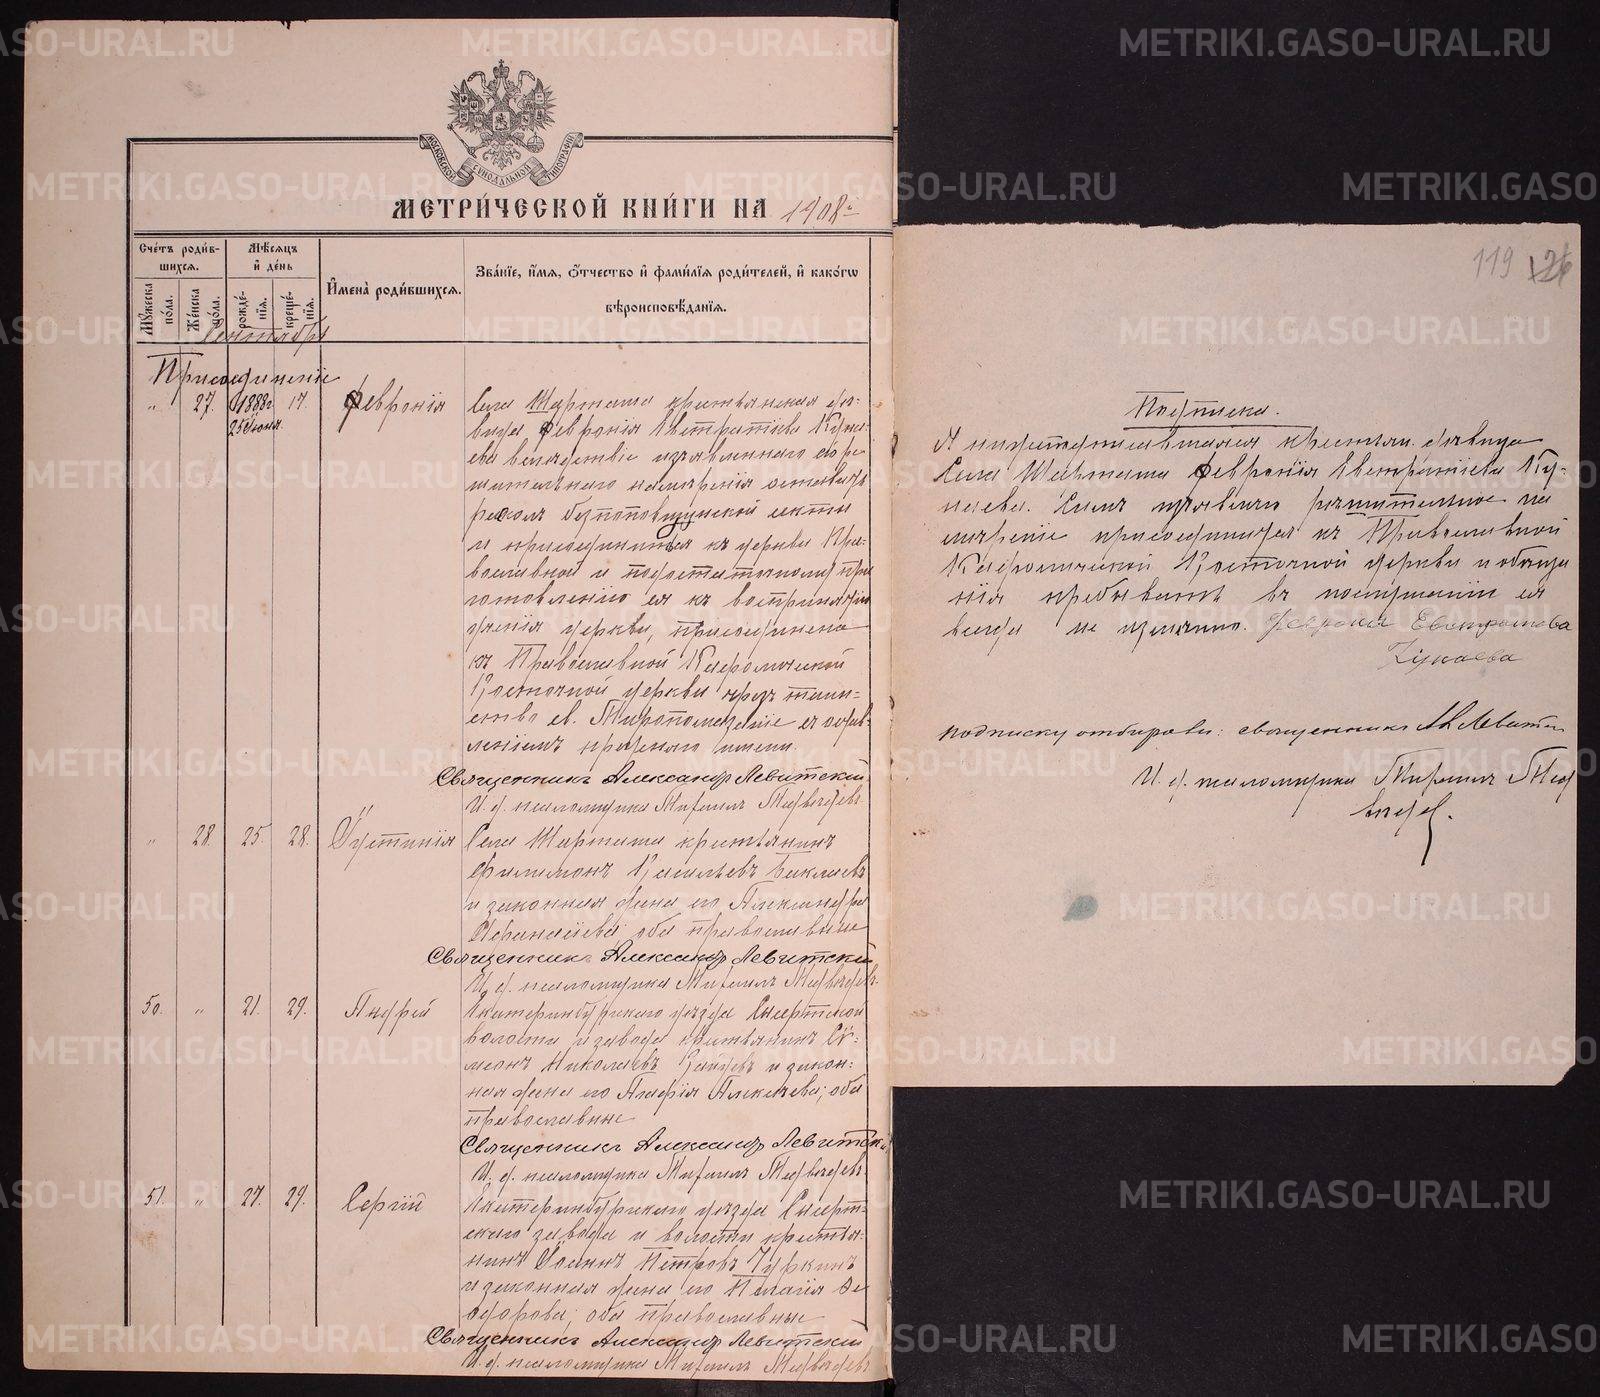 МОСКОВСКОЙ СѴНОДАЛЬНОЙ ТИПОГРАФІИ
МЕТРИ́ЧЕСКОЙ КНИ́ГИ НА 1908й
Сче́тъ роди́в-
шихся.
Мѣ́сяцъ
и҆ де́нь
И҆мена̀ роди́вшихся.
Зва́нїе, и҆́мя, ѻ҆́тчество и҆ фами́лїя роди́телей, и҆ како́гѡ
вѣроисповѣ́данїя.
Мꙋ́жеска по́ла.
Же́нска по́ла.
рожде́нїѧ.
креще́нїѧ.
Сентябрь
Присоединеніе
" 27. 1888г. 25 Іюня. 17. Февронія
Села Шарташа крестьянская дѣ-
вица Февронія Евстратіева Кука-
ева вслѣдствіе изъявленнаго ею рѣ
шительнаго намѣренія оставить
расколъ безпоповщинской секты
и присоединиться къ церкви Пра-
вославной и по достаточному при
готовленію ея къ воспринятію
ученія церкви, присоединена
къ Православной Каѳолической
Восточной церкви чрезъ таин-
ство св. Миропомазаніе съ остав-
леніемъ прежняго имени.
Священникъ Александръ Левитскій
И. д. псаломщика Михаилъ Медвѣдевъ.
" 28. 25. 28. Іустинія
Села Шарташа крестьянинъ
Филимонъ Васильевъ Баклаевъ
и законная жена его Александра
Аѳанасіева; оба православные
Священникъ Александръ Левитскій
И. д. псаломщика Михаилъ Медвѣдевъ.
50. " 21. 29. Андрей
Екатеринбургскаго уѣзда Сысертской
волости и завода крестьянинъ Си-
меонъ Николаевъ Зайцевъ и закон-
ная жена его Агафія Алексѣева; оба
православные
Священникъ Александръ Левитскій
И. д. псаломщика Михаилъ Медвѣдевъ.
51. " 27. 29. Сергій
Екатеринбургскаго уѣзда Сысерт-
скаго завода и волости крестья-
нинъ Іоаннъ Петровъ Чуркинъ
и законная жена его Пелагія Ѳе
одорова; оба православные
Священникъ Александръ Левитскій
И. д. псаломщика Михаилъ Медвѣдевъ
119
Подписка.
Я нижеподписавшаяся крестьян. дѣвица
Села Шарташа Февронія Евстратіева Ку-
каева. Симъ изъявляю рѣшительное на
мѣреніе присоединиться къ Православной
Каѳолической Восточной церкви и обѣща
нія пребывать въ послушаніи ея
всегда не измѣнно. Феврония Евстратова
Кукаева
подписку отбирали: священникъ Ал. Левитскій
И. д. псаломщика Михаилъ Мед
вѣдев.
METRIKI.GASO-URAL.RU